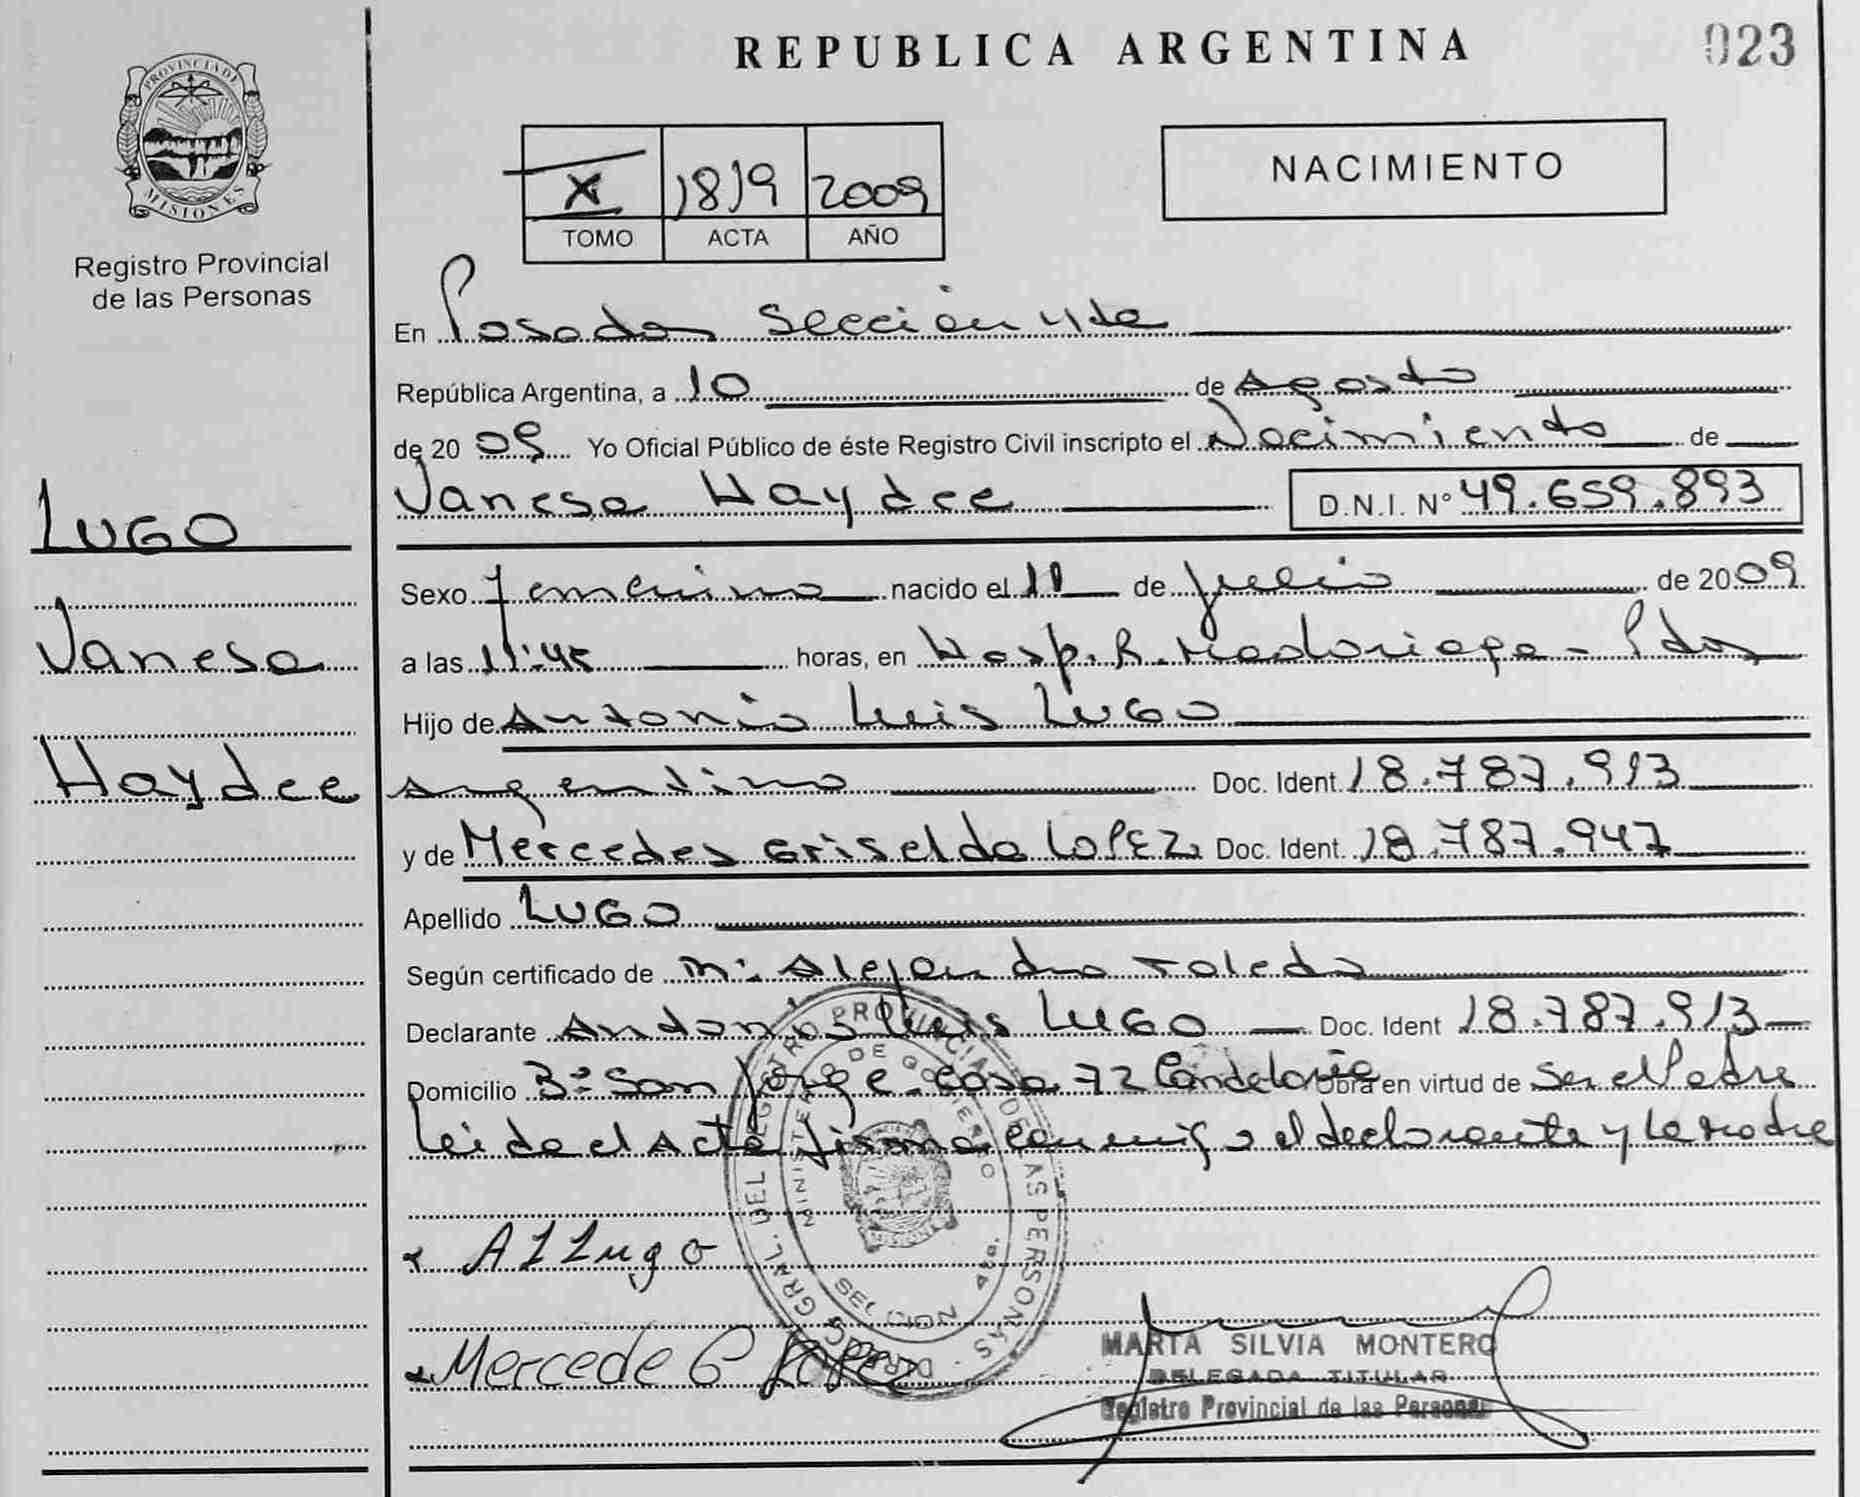 REPUBLICA ARGENTINA
023
PROVINCIA DE MISIONES
Registro Provincial
de las Personas
X 1819 2009
TOMO ACTA AÑO
NACIMIENTO
En Posadas Sección 4ta
República Argentina, a 10 de Agosto
de 2009 Yo Oficial Público de éste Registro Civil inscripto el Nacimiento de
Vanesa Haydee D.N.I. Nº 49.659.893
LUGO
Vanesa
Haydee
Sexo Femenino nacido el 11 de Julio de 2009
a las 11:45 horas, en Hosp. R. Madariaga - Pdas
Hijo de Antonio Luis LUGO
Argentino Doc. Ident. 18.787.913
y de Mercedes Griselda LOPEZ Doc. Ident. 18.787.947
Apellido LUGO
Según certificado de Mª Alejandra Toledo
Declarante Antonio Luis LUGO Doc. Ident 18.787.913
Domicilio Bº San Jorge - Casa 72 Candelaria Obra en virtud de Ser el Padre
Leida el Acta firma conmigo el declarante y la madre
A L Lugo
Mercede G Lopez
DIREC. GRAL. DEL REGISTRO PROVINCIAL DE LAS PERSONAS
MINISTERIO DE GOBIERNO
SECCION 4ta.
MISIONES
MARTA SILVIA MONTERO
DELEGADA TITULAR
Registro Provincial de las Personas